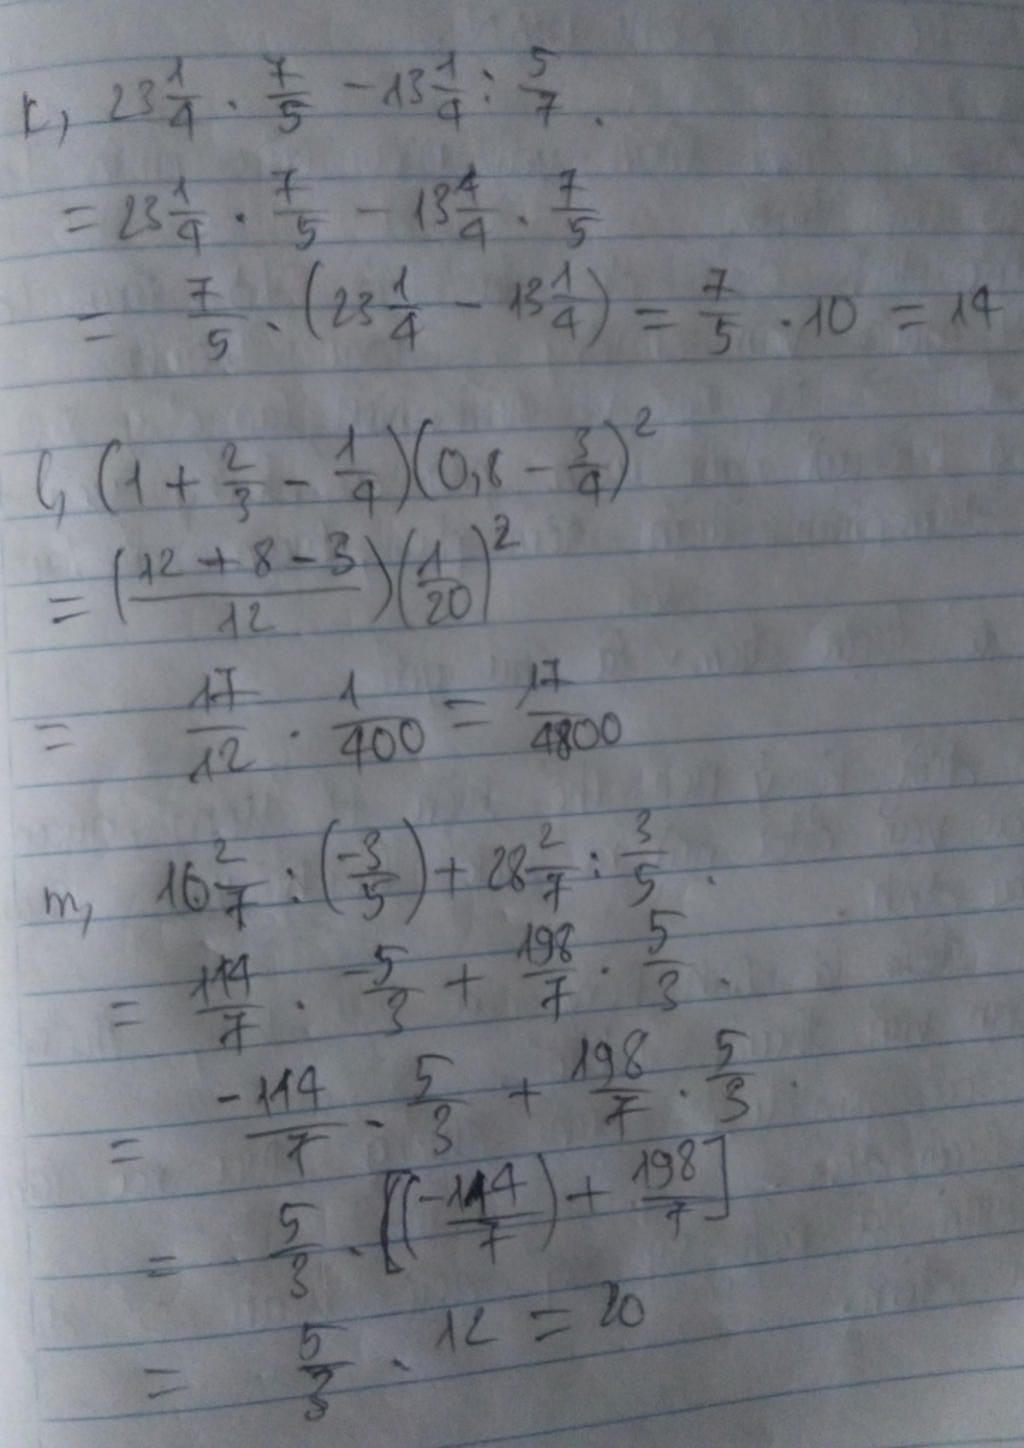 k, 23 1/4 . 7/5 - 13 1/4 : 5/7 .
= 23 1/4 . 7/5 - 13 4/4 . 7/5
= 7/5 . (23 1/4 - 13 1/4) = 7/5 . 10 = 14
l, (1 + 2/3 - 1/4)(0,8 - 3/4)²
= ((12 + 8 - 3)/12)(1/20)²
= 17/12 . 1/400 = 17/4800
m, 16 2/7 : (-3/5) + 28 2/7 : 3/5 .
= 114/7 . -5/3 + 198/7 . 5/3 .
= -114/7 . 5/3 + 198/7 . 5/3 .
= 5/3 . [(-114/7) + 198/7]
= 5/3 . 12 = 20